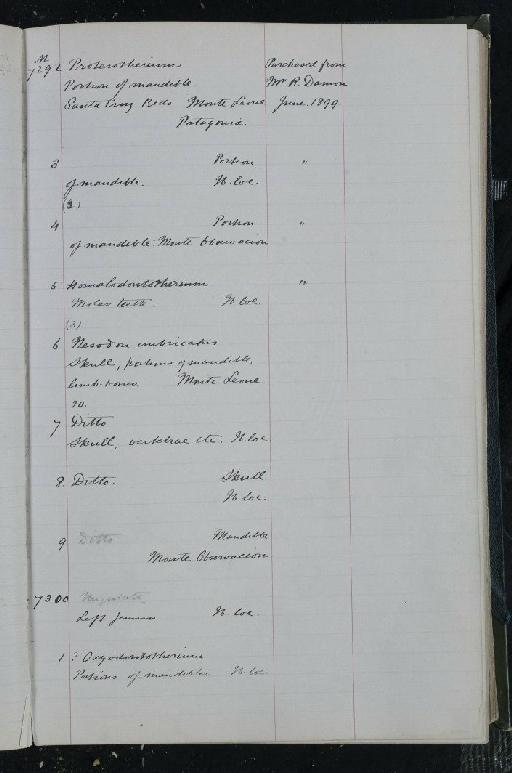 M
7292 Proterotherium Purchased from
Portion of mandible Mr R. Damon
Santa Cruz Beds Monte Leone June 1899
Patagonia.
3 Portion "
of mandible. N. loc.
(2)
4 Portion "
of mandible. Monte Observacion
5 Homalodontotherium "
Molar teeth. N. loc.
(3)
6 Nesodon imbricatus
Skull, portions of mandible,
limb-bones Monte Leone
7 Ditto
Skull, vertebrae etc. N. loc
8. Ditto. Skull
N. loc.
9 Ditto Mandible
Monte Observacion
7300 Ungulata
Left femur N. loc.
1 ? Oxyodontotherium
Portions of mandible N. loc